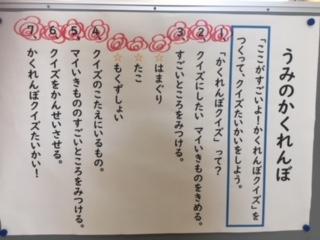 うみのかくれんぼ
「ここがすごいよ！かくれんぼクイズ」を
つくって、クイズたいかいをしよう。
① 「かくれんぼクイズ」って？
② クイズにしたい マイいきものをきめる。
③ すごいところをみつける。
☆はまぐり
☆たこ
☆もくずしょい
④ クイズのこたえにいるもの。
⑤ マイいきもののすごいところをみつける。
⑥ クイズをかんせいさせる。
⑦ かくれんぼクイズたいかい！